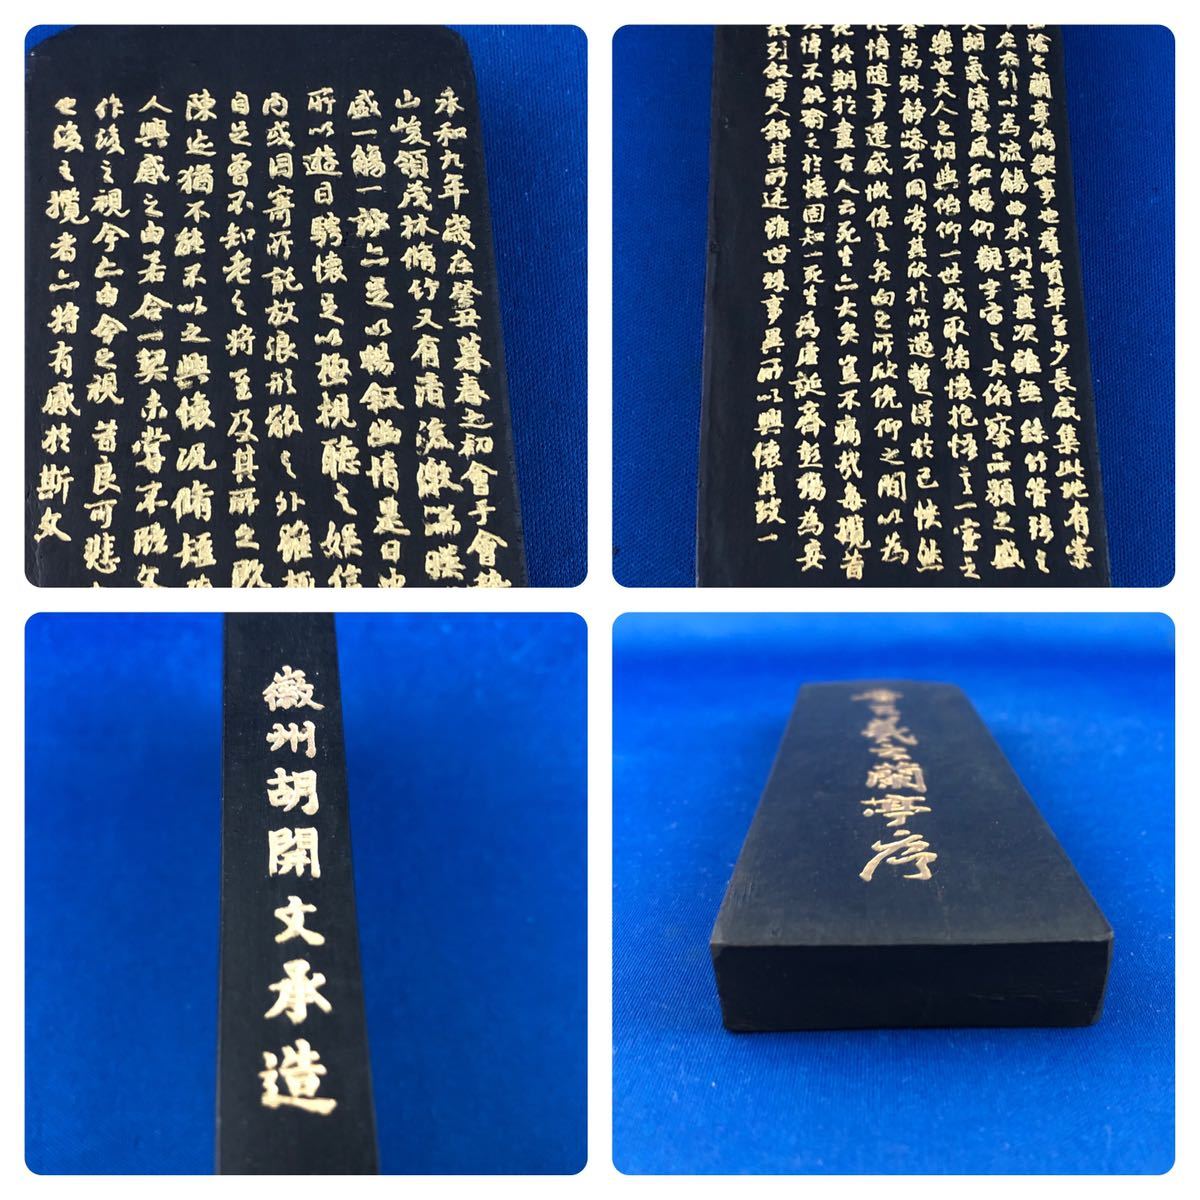 永和九年歲在癸丑暮春之初會于會
山峻領茂林脩竹又有清流激湍暎
盛一觴一詠亦足以暢叙幽情是日也
所以遊目騁懷足以極視聽之娛信
內或因寄所託放浪形骸之外雖趣
自足曾不知老之將至及其所之既
陳迹猶不能不以之興懷況脩短
人興感之由若合一契未嘗不臨文
作後之視今亦由今之視昔良可悲
也後之攬者亦將有感於斯文
山陰之蘭亭脩禊事也羣賢畢至少長咸集此地有崇
左右引以為流觴曲水列坐其次雖無絲竹管弦之
朗氣清惠風和暢仰觀宇宙之大俯察品類之盛
樂也夫人之相與俯仰一世或取諸懷抱悟言一室之
萬殊靜躁不同當其欣於所遇蹔得於己快然
情隨事遷感慨係之矣向之所欣俛仰之間以為
化終期於盡古人云死生亦大矣豈不痛哉每攬昔
悼不能喻之於懷固知一死生為虛誕齊彭殤為妄
列叙時人錄其所述雖世殊事異所以興懷其致一
徽州胡開文承造
晉王羲之蘭亭序